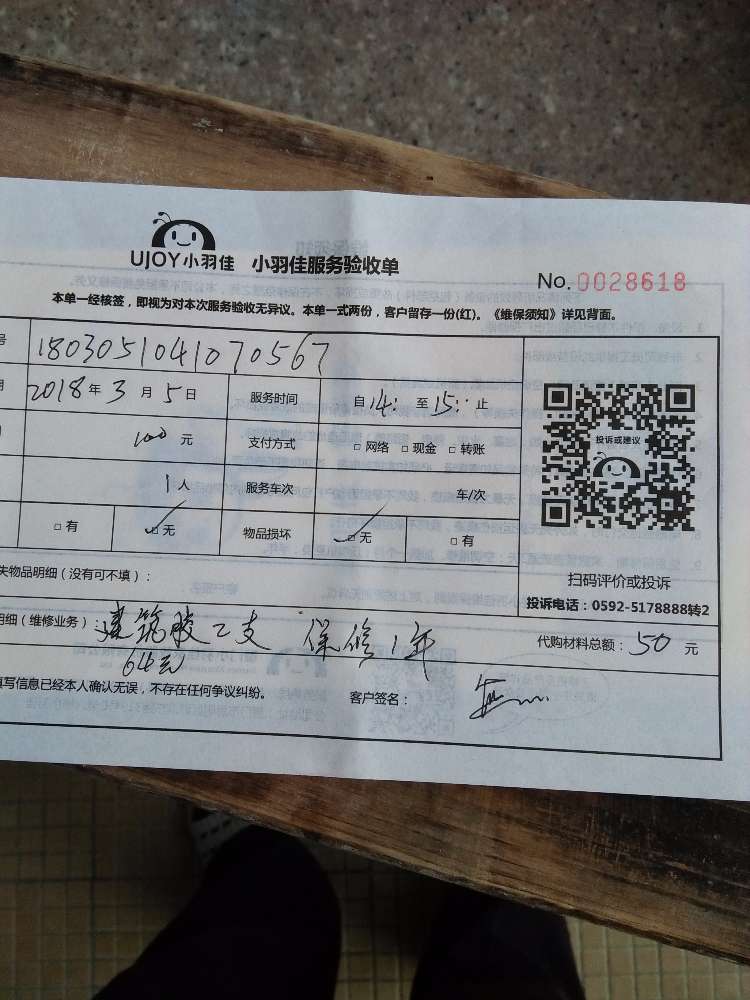 UJOY小羽佳 小羽佳服务验收单
No.0028618
本单一经核签，即视为对本次服务验收无异议。本单一式两份，客户留存一份(红)。《维保须知》详见背面。
号 1803051041070567
期 2018年3月5日 服务时间 自14: 至15: 止
100元 支付方式 □网络 □现金 □转账
1人 服务车次 车/次
□有 □无 物品损坏 □无 □有
投诉或建议
扫码评价或投诉
投诉电话：0592-5178888转2
失物品明细（没有可不填）：
明细（维修业务）： 建筑胶2支 保修1年 代购材料总额：50元
填写信息已经本人确认无误，不存在任何争议纠纷。 客户签名：